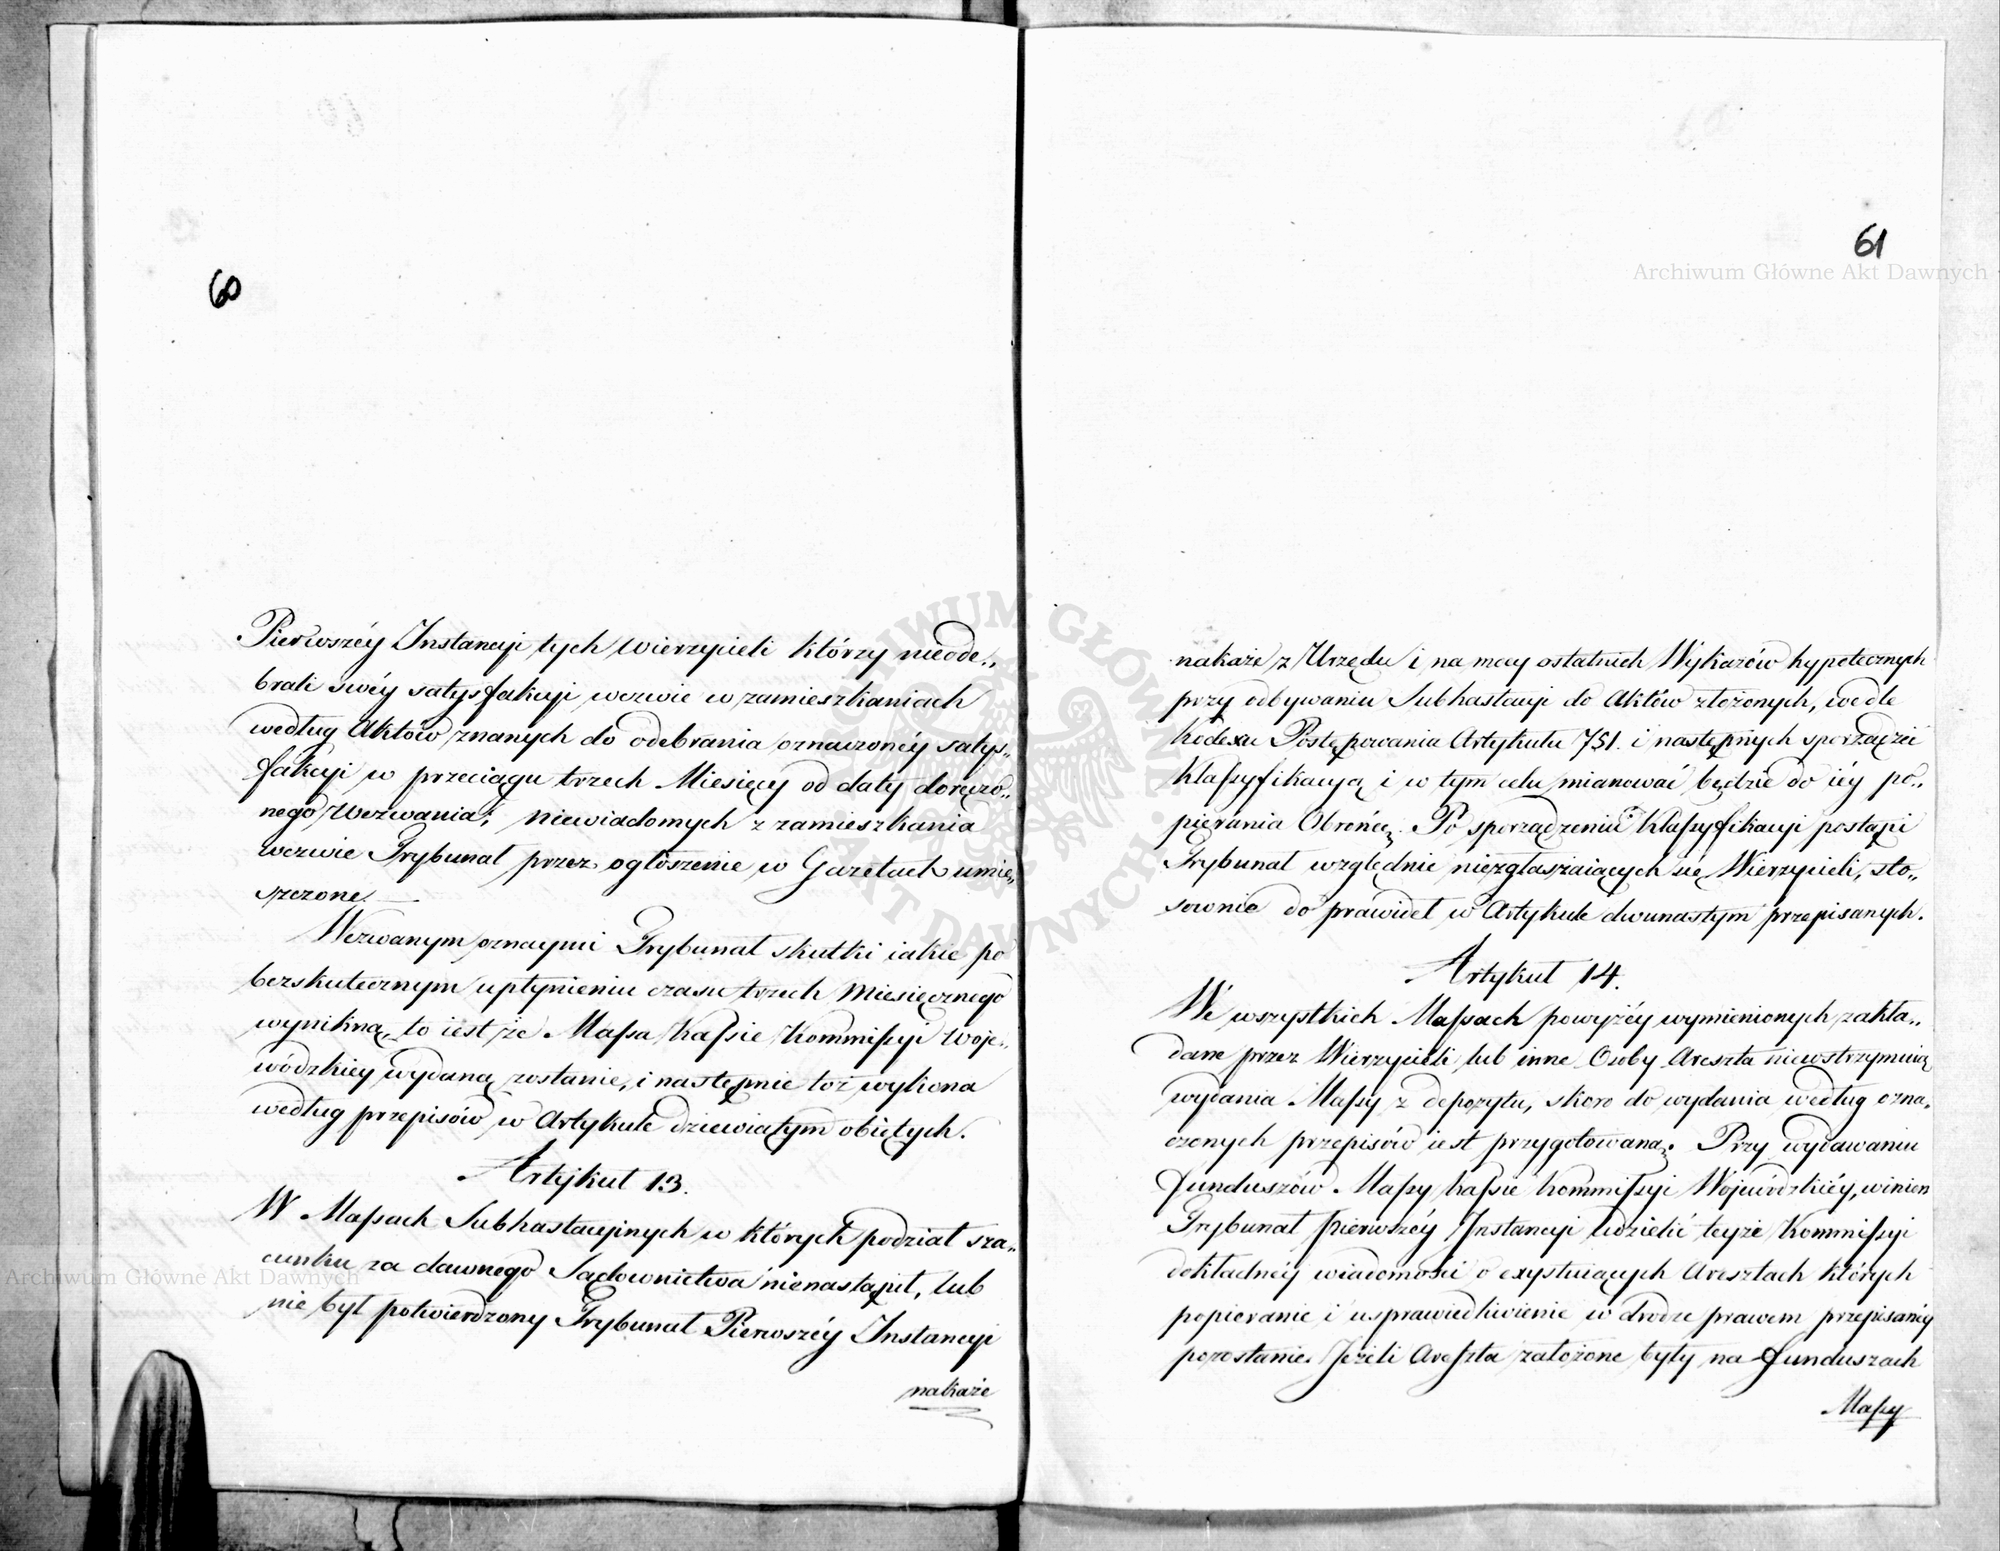 60
Pierwszéy Instancyi tych Wierzycieli którzy nieode„
brali swéy satysfakcyi wezwie w zamieszkaniach
według Aktów znanych do odebrania oznaczonéy satys„
fakcyi w przeciągu trzech Miesięcy od daty doręczo„
nego Wezwania; niewiadomych z zamieszkania
wezwie Trybunał przez ogłoszenie w Gazetach umie„
szczone.
Wezwanym oznaymi Trybunał skutki iakie po
bezskutecznym upłynieniu czasu trzech Miesięcznego
wynikną, to iest że Massa Kassie Kommissyi Woje„
wódzkiey wydaną zostanie, i następnie toż wykona
według przepisów w Artykule dziewiątym obiętych.
Artykuł 13.
W Massach Subhastacyjnych w których podział sza„
cunku za dawnego Sądownictwa nienastąpił, lub
nie był potwierdzony Trybunał Pierwszéy Instancyi
nakaże
61
nakaże z Urzędu i na mocy ostatnich Wykazów hypotecznych
przy odbywaniu Subhastacyi do Aktów złożonych, wedle
Kodexu Postępowania Artykułu 751. i następnych sporządzić
Klassyfikacyą i w tym celu mianować będzie do iéy po„
pierania Obrońcę. Po sporządzeniu Klassyfikacyi postąpi
Trybunał względnie niezgłaszaiących się Wierzycieli, sto„
sownie do prawideł w Artykule dwunastym przepisanych.
Artykuł 14.
We wszystkich Massach powyżéy wymienionych zakła„
dane przez Wierzycieli lub inne Osoby Areszta niewstrzymuią
wydania Massy z depozytu, skoro do wydania według ozna„
czonych przepisów iest przygotowaną. Przy wydawaniu
funduszów Massy Kassie Kommissyi Wojewódzkiéy, winien
Trybunał pierwszéy Instancyi udzielić teyże Kommissyi
dokładnéy wiadomości o exystuiących Aresztach których
popieranie i usprawiedliwienie w drodze prawem przepisanéy
pozostanie. Jeżeli Areszta założone były na funduszach
Massy
Archiwum Główne Akt Dawnych
Archiwum Główne Akt Dawnych
ARCHIWUM GŁÓWNE AKT DAWNYCH